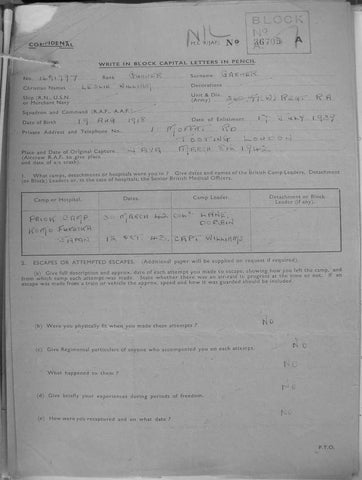 CONFIDENTIAL
NIL
M.I.9/JAP/ No
BLOCK
No
36705 A
WRITE IN BLOCK CAPITAL LETTERS IN PENCIL
No. Rank GUNNER Surname
Christian Names LESLIE WILLIAM
Ship (R.N., U.S.N. or Merchant Navy) Unit & Div. (Army) REGT R.A.
Squadron and Command (R.A.F., A.A.F.)
Date of Birth 19 AUG 1918 Date of Enlistment 1939
Private Address and Telephone No. 1 MOFFAT RD
TOOTING LONDON
Place and Date of Original Capture JAVA MARCH 8TH 1942
(Aircrew R.A.F. to give place
and date of a/c crash).
1. What camps, detachments or hospitals were you in? Give dates and names of the British Camp Leaders, Detachment
(or Block) Leaders or, in the case of hospitals, the Senior British Medical Officers.
Camp or Hospital. Dates. Camp Leader. Detachment or Block
Leader (if any).
CAMP 30 MARCH 42 LANE
JAPAN CAPT WILLIAMS
2. ESCAPES OR ATTEMPTED ESCAPES. (Additional paper will be supplied on request if required).
(a) Give full description and approx. date of each attempt you made to escape, showing how you left the camp, and
from which camp each attempt was made. State whether there was an air-raid in progress at the time or not. If an
escape was made from a train or vehicle the approx. speed and how it was guarded should be included.
NO
(b) Were you physically fit when you made these attempts?
NO
(c) Give Regimental particulars of anyone who accompanied you on each attempt.
NO
What happened to them?
NO
(d) Give briefly your experiences during periods of freedom.
NO
(e) How were you recaptured and on what date?
P.T.O.